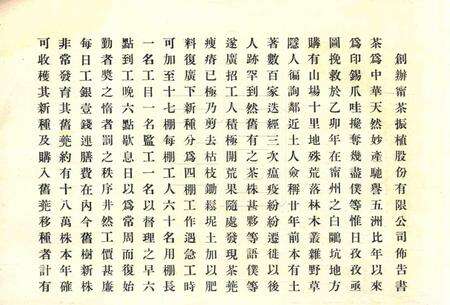 創辦甯茶振植股份有限公司佈告書
茶為中華天然妙產馳譽五洲比年以來
為印錫爪哇攙奪幾盡僕等惟日孜孜亟
圖挽救於乙卯年在甯州之白鸛坑地方
購有山場十里地殊荒落林木叢雜野草
隱人徧詢鄰近土人僉稱廿年前本有土
著數百家迭經三次瘟疫紛紛遷徙以後
人跡罕到然舊有之茶株甚夥等語僕等
遂廣招工人積極開荒果隨處發現茶蔸
瘦瘠已極乃剪去枯枝鋤鬆坭土加以肥
料復廣下新種分為四棚工作遇急工時
可加至十七棚每棚工人六十名用棚長
一名工目一名監工一名以督理之早六
點到工晚六點歇息日以為常周而復始
勤者獎之惰者罰之秩序井然工價甚廉
每日工銀壹錢連膳費在內今舊樹新株
非常發育其舊蔸約有十八萬株本年確
可收穫其新種及購入舊蔸移種者計有